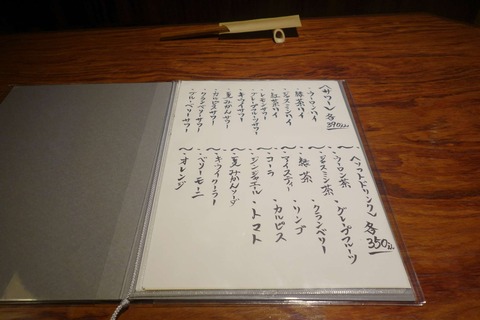 〈サワー〉各390円
・ウーロンハイ
・緑茶ハイ
・ジャスミンハイ
・紅茶ハイ
・レモンサワー
・グレープフルーツサワー
・キウイサワー
・夏みかんサワー
・カルピスサワー
・クランベリーサワー
・ブルーベリーサワー
〈ソフトドリンク〉各350円
〜・ウーロン茶・グレープフルーツ
〜・ジャスミン茶・クランベリー
〜・緑茶・リンゴ
〜・アイスティー・カルピス
〜・コーラ・トマト
〜・ジンジャエール
〜・夏みかんソーダ
〜・キウイクーラー
〜・ベリーモーニ
〜・オレンジ